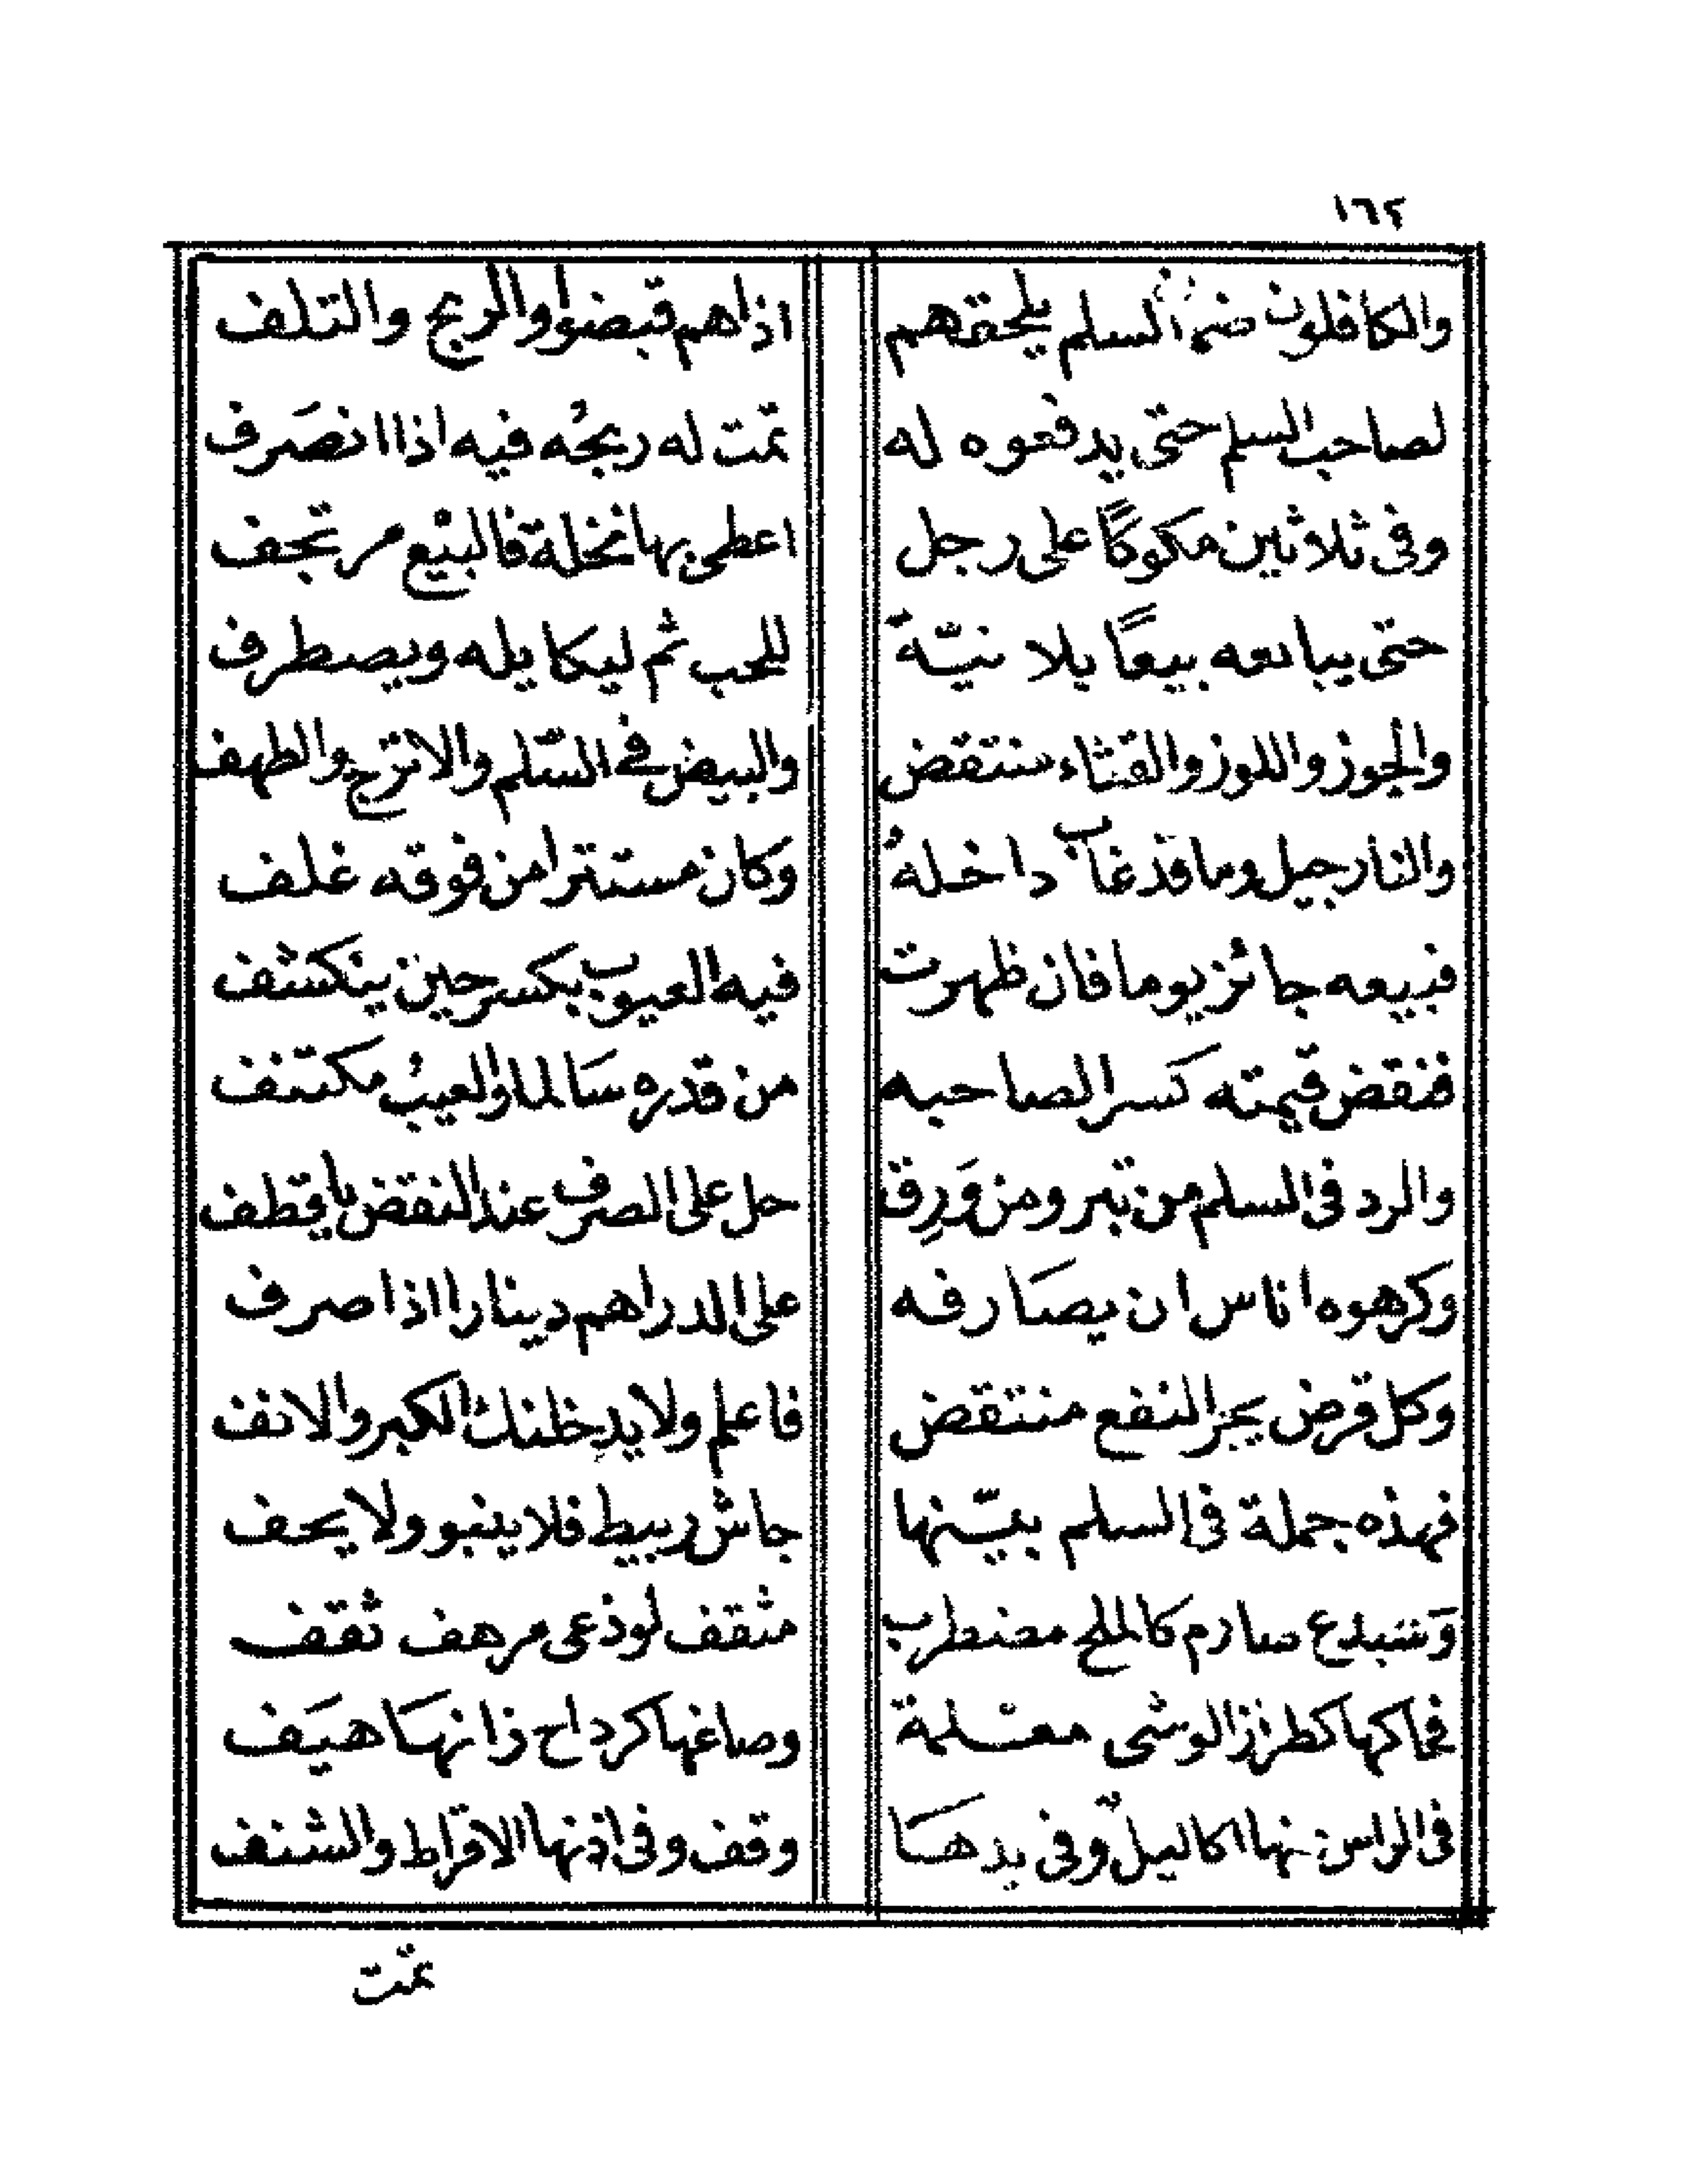 ١٦٢
والكافلون ضمان السلم يلحقهم اذا هم قبضوا والربح والتلف
لصاحب السلم حتى يدفعوه له تمت له ربحُه فيه اذا انصَرف
وفى ثلاثين مكوكًا على رجل اعطى بها نخلة فالبيْع مرتجف
حتى يبايعه بيعًا بلا نيّة للحب ثم ليكايله ويصطرف
والجوز واللوز والقثاء منتقض والبيض في السّلم والاترج والطهف
والنارجيل وما قد غاب داخلهُ وكان مستترا من فوقه غلف
فبيعه جائز يوما فان ظهرت فيه العيوب بكسر حين ينكشف
فنقض قيمته كسرا لصاحبه من قدره سَالما والعيبُ مكتنف
والرد فى السلم من تبر ومن وَرِق حل على الصرف عند النقض يا قطف
وكرهوه اناس ان يصَارفه على الدراهم دينارا اذا صرف
وكل قرض يجر النفع منتقض فاعلم ولا يدخلنك الكبر والانف
فهذه جملة فى السلم بيّنها جاش ربيط فلا ينبو ولا يحف
صارم كالملح مضطرب مثقف لوذعى مرهف ثقف
فحاكها كطراز الوشى معلمة وصاغها كرداح زانهَا هيَف
فى الراس منها اكاليل وفى يدهَا وقف وفى اذنها الاقراط والشنف
تمت